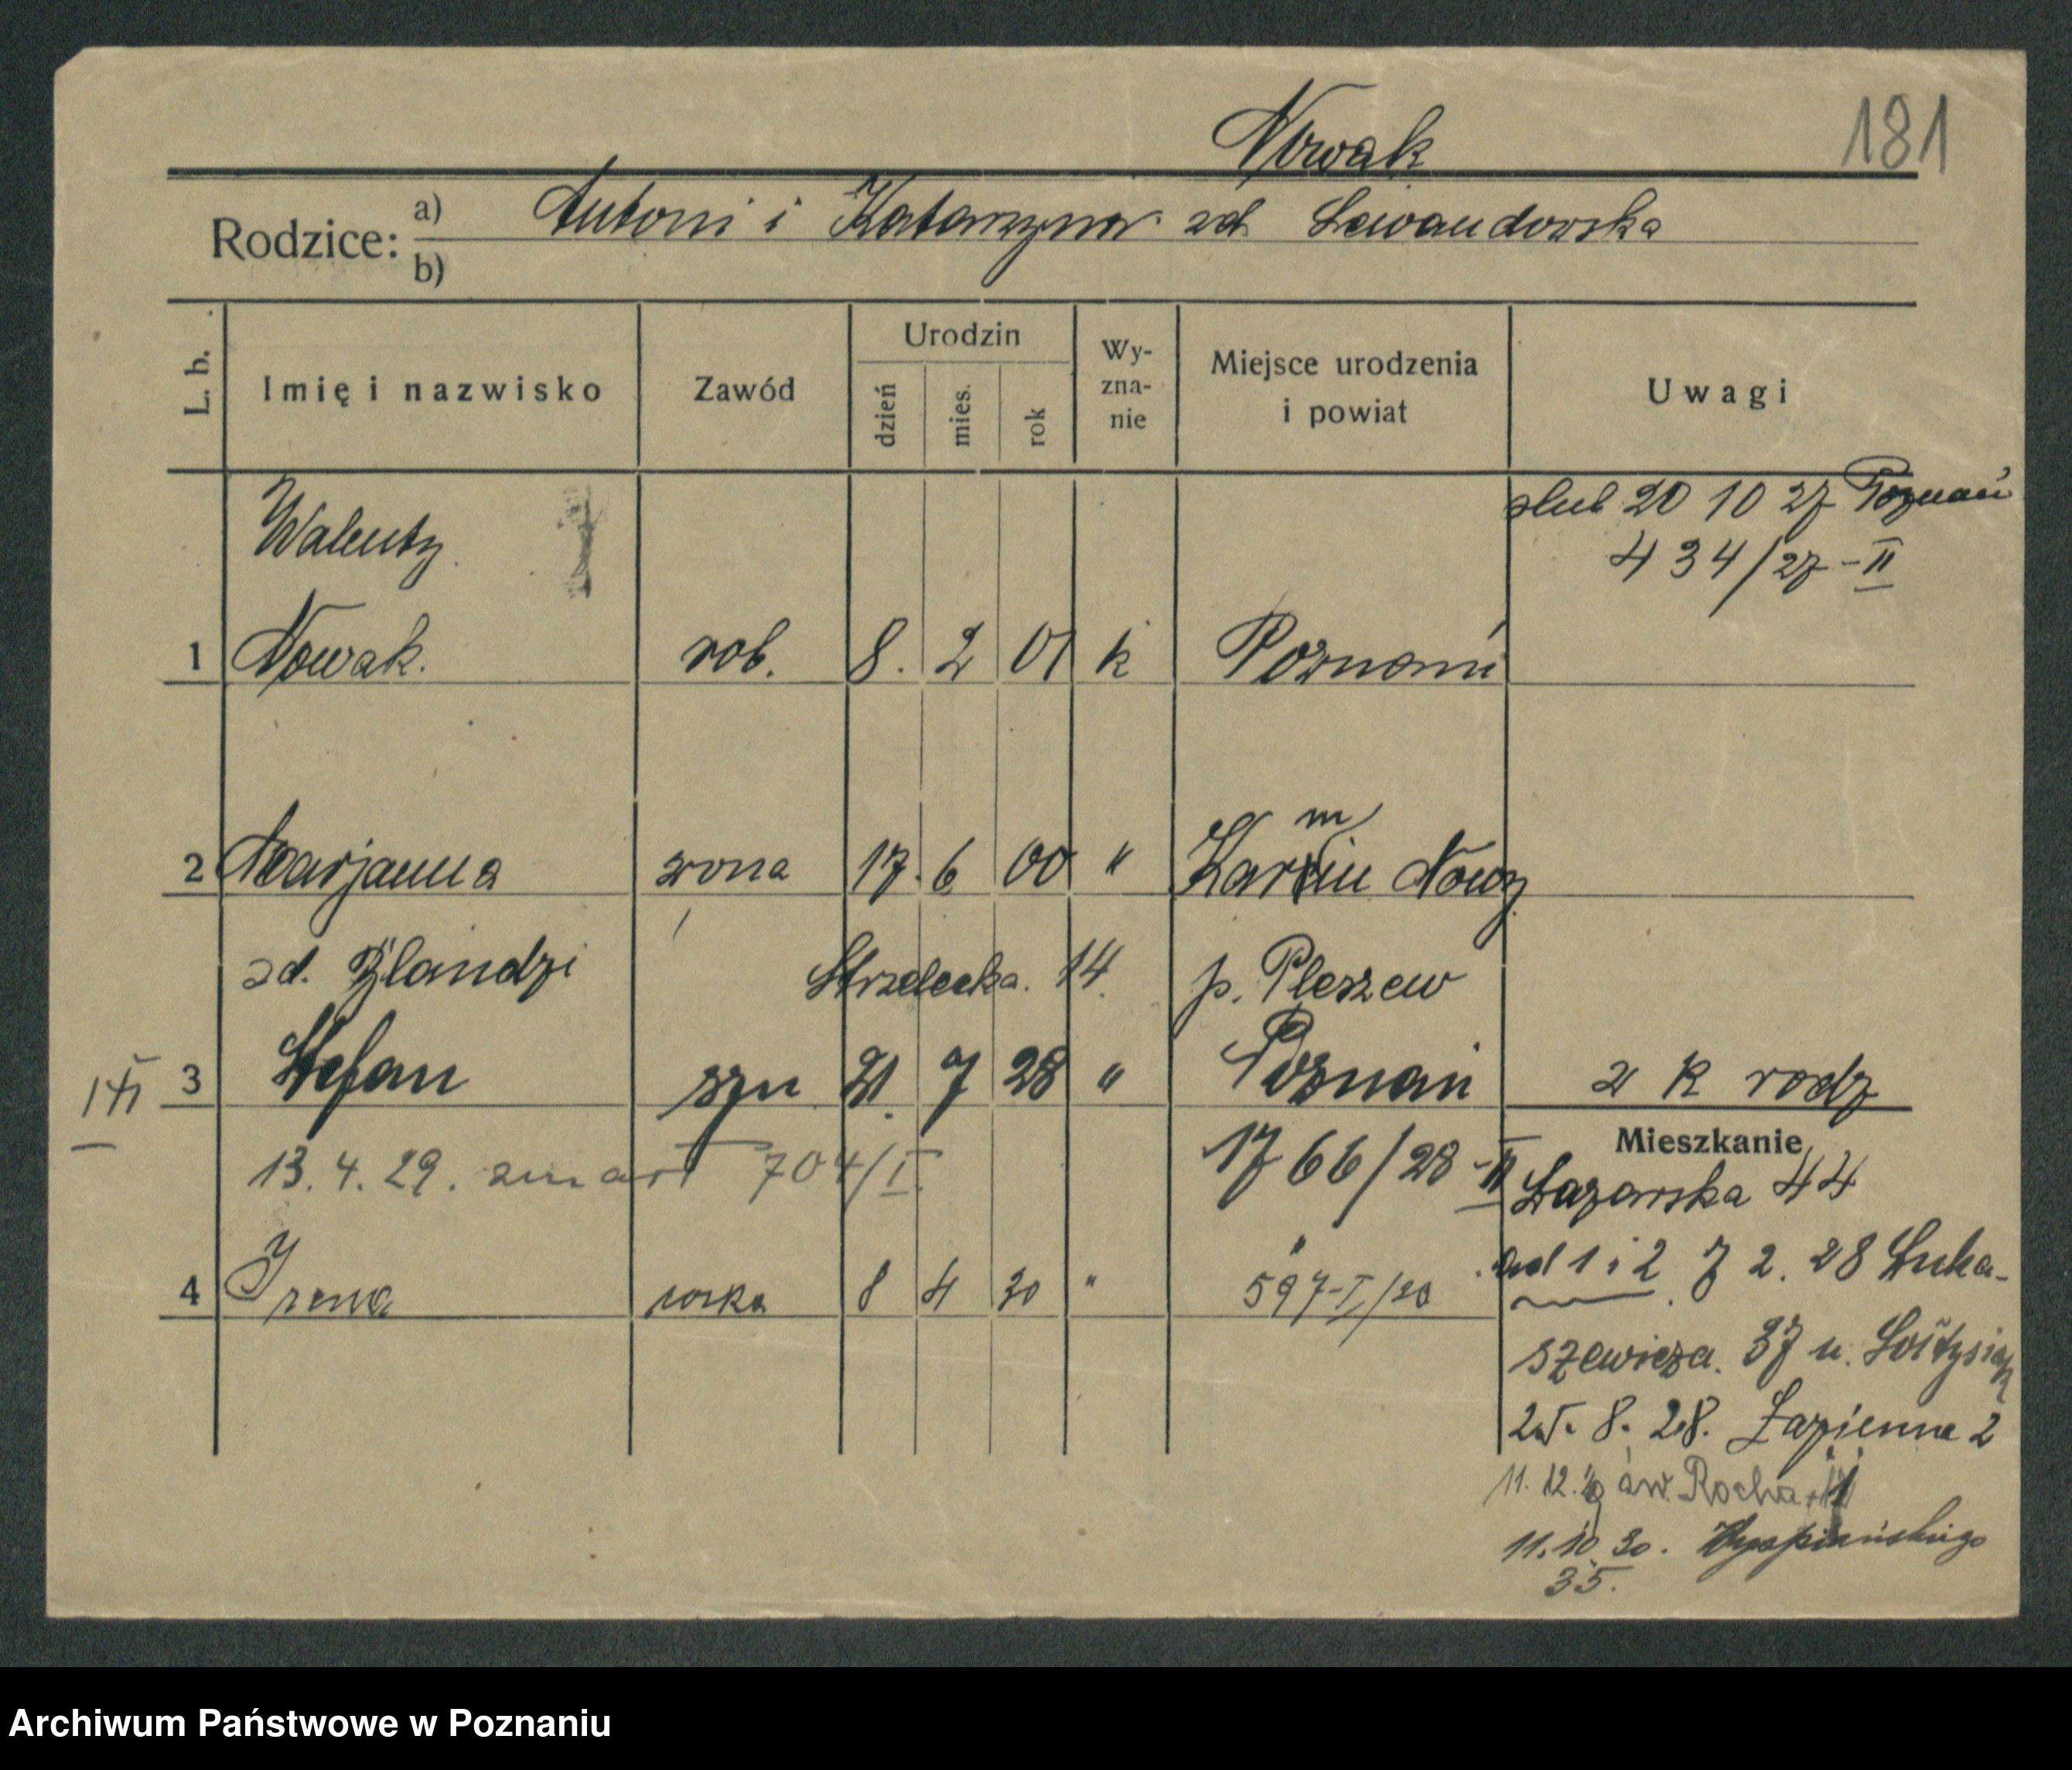 181
Nowak
Rodzice: a) Antoni i Katarzyna zd Lewandowska
b)
L. b. Imię i nazwisko Zawód Urodzin dzień mies. rok Wy-zna-nie Miejsce urodzenia i powiat Uwagi
ślub 20 10 27 Poznań
434/27-II
Walenty
1 Nowak. rob. 8. 2 01 k Poznań
m
2 Marjanna żona 17. 6 00 " Karmin Nowy
zd. Strzelecka. 14. p. Pleszew
3 Stefan syn 21. 7 28 " Poznań k rodz
1766/28-II
13.4.29. zmarł 704/I.
Mieszkanie
Łazarska 44
4 Irena córka 8 4 30 " "
597-I/30
ad 1 i 2 7 2. 28 Łuka-
szewicza. 37 u.
25. 8. 28. Łazienna 2
11. 12. św. Rocha
11. 10. 30. Wyspiańskiego
35.
Archiwum Państwowe w Poznaniu